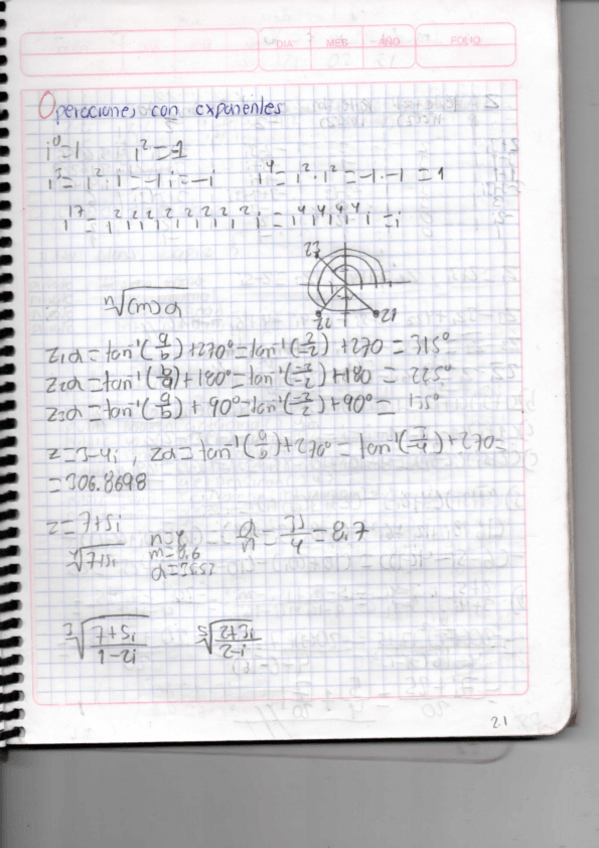 DIA MES AÑO FOLIO
Operaciones con exponentes
i⁰=1 i²=-1
i³=i²·i=-1i=-i i⁴=i²·i²=-1·-1=1
i¹⁷=i²i²i²i²i²i²i²i²i=i⁴i⁴i⁴i⁴i=i
z3
ⁿ√(m)α
z2 z1
z1α=tan⁻¹( )+270°=tan⁻¹( )+270=315°
z2α=tan⁻¹( )+180°=tan⁻¹( )+180=225°
z3α=tan⁻¹( )+90°=tan⁻¹( )+90°=
z=3-4i, zα=tan⁻¹( )+270°=tan⁻¹( )+270=
=306.8698
z=7+5i
⁴√7+5i n=4 α/n= /4=8.7
m=8.6
α=35.53
³√(7+5i/1-2i) ⁵√(2+3i/2-i)
2.1